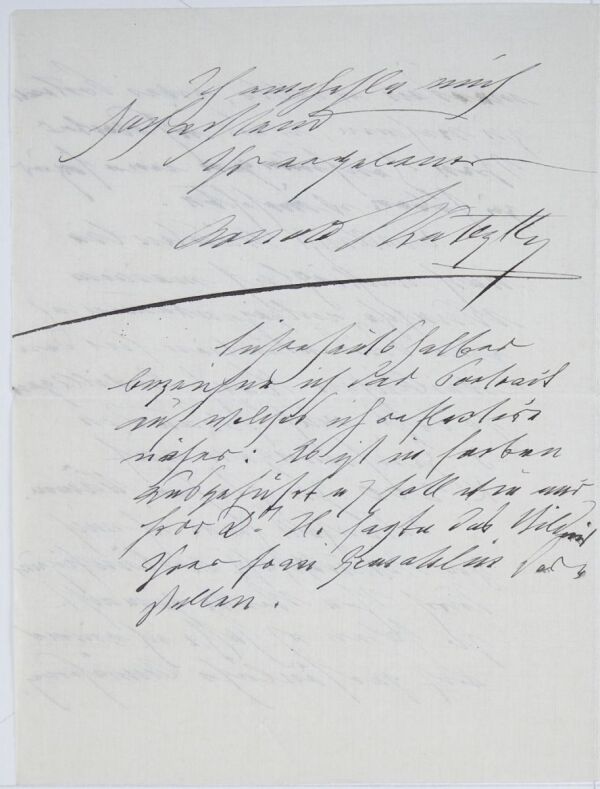 Ich empfehle mich
hochachtend
Ihr ergebener
Arnold Skutezky
Sicherheitshalber
bezeichne ich das Portrait
auf welches ich reflectire
näher: Es ist in Farben
ausgeführt u soll wie mir
Herr Dr. H. sagte das Bildniß
Ihrer Frau Gemahlin dar-
stellen.